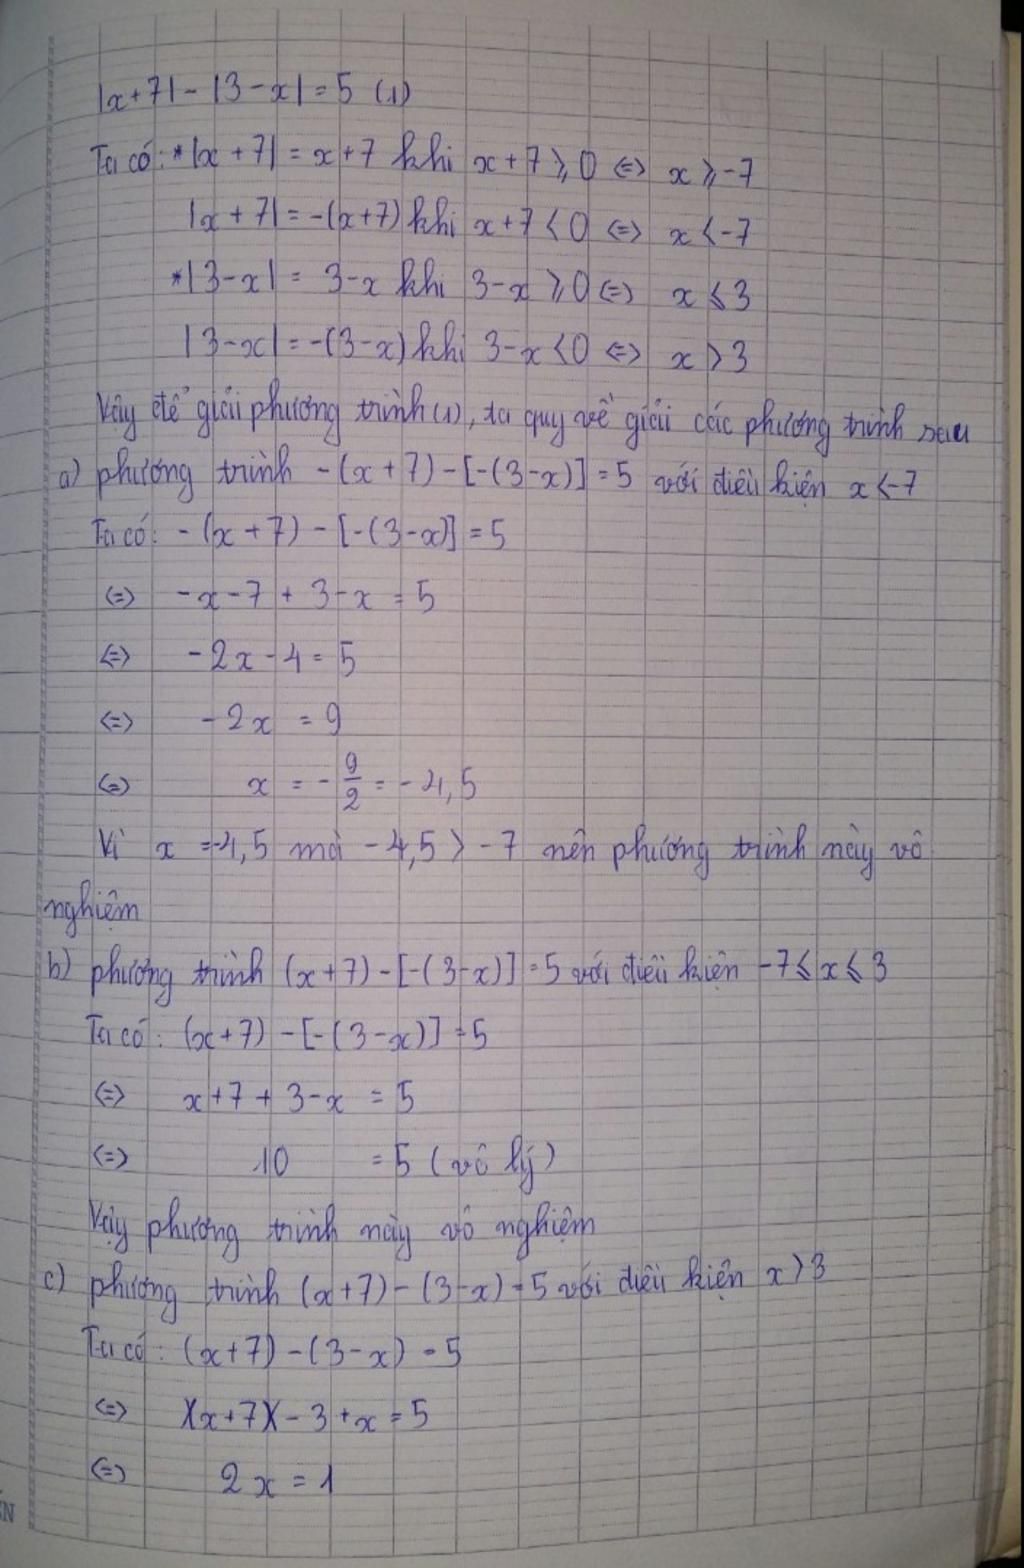 |x+7| - |3-x| = 5 (1)
Ta có: *|x+7| = x+7 khi x+7 ≥ 0 ⇔ x ≥ -7
|x+7| = -(x+7) khi x+7 < 0 ⇔ x < -7
*|3-x| = 3-x khi 3-x ≥ 0 ⇔ x ≤ 3
|3-x| = -(3-x) khi 3-x < 0 ⇔ x > 3
Vậy để giải phương trình (1), ta quy về giải các phương trình sau
a) phương trình -(x+7) - [-(3-x)] = 5 với điều kiện x < -7
Ta có: -(x+7) - [-(3-x)] = 5
⇔ -x-7 + 3-x = 5
⇔ -2x - 4 = 5
⇔ -2x = 9
⇔ x = -9/2 = -4,5
Vì x = -4,5 mà -4,5 > -7 nên phương trình này vô
nghiệm
b) phương trình (x+7) - [-(3-x)] = 5 với điều kiện -7 ≤ x ≤ 3
Ta có: (x+7) - [-(3-x)] = 5
⇔ x+7 + 3-x = 5
⇔ 10 = 5 (vô lý)
Vậy phương trình này vô nghiệm
c) phương trình (x+7) - (3-x) = 5 với điều kiện x > 3
Ta có: (x+7) - (3-x) = 5
⇔ x+7 - 3 + x = 5
⇔ 2x = 1